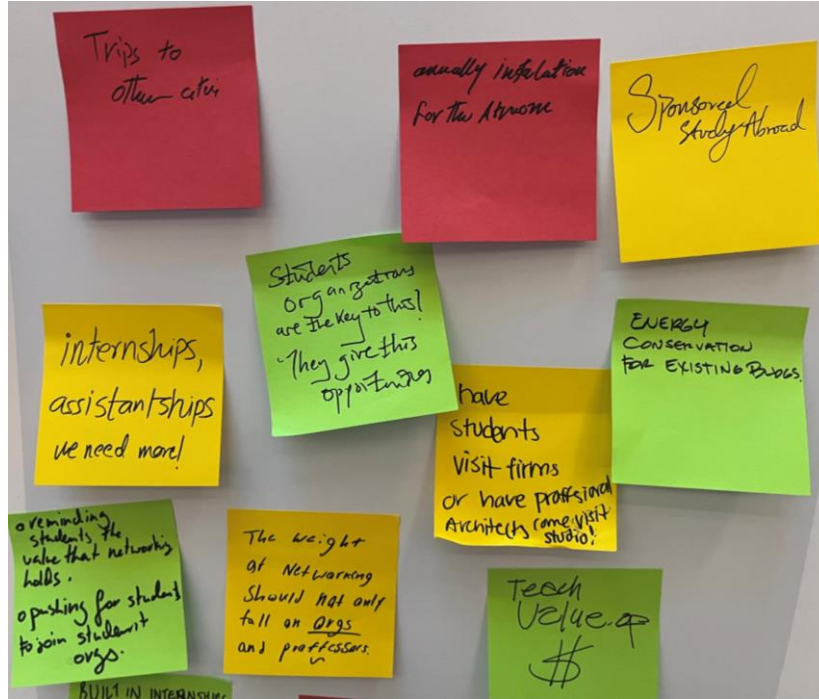 Trips to
other
anually
for the
Sponsored
Study Abroad
Students
organizations
are the key to this!
They give this
internships,
assistantships
we need more!
ENERGY
CONSERVATION
FOR EXISTING BLDGS.
have
students
visit firms
or have
Architects come visit
studio!
o reminding
students the
value that networking
holds.
o pushing for students
to join student
orgs.
The weight
of Networking
Should not only
fall on orgs
and
Teach
Value of
$
BUILT IN INTERNSHIPS